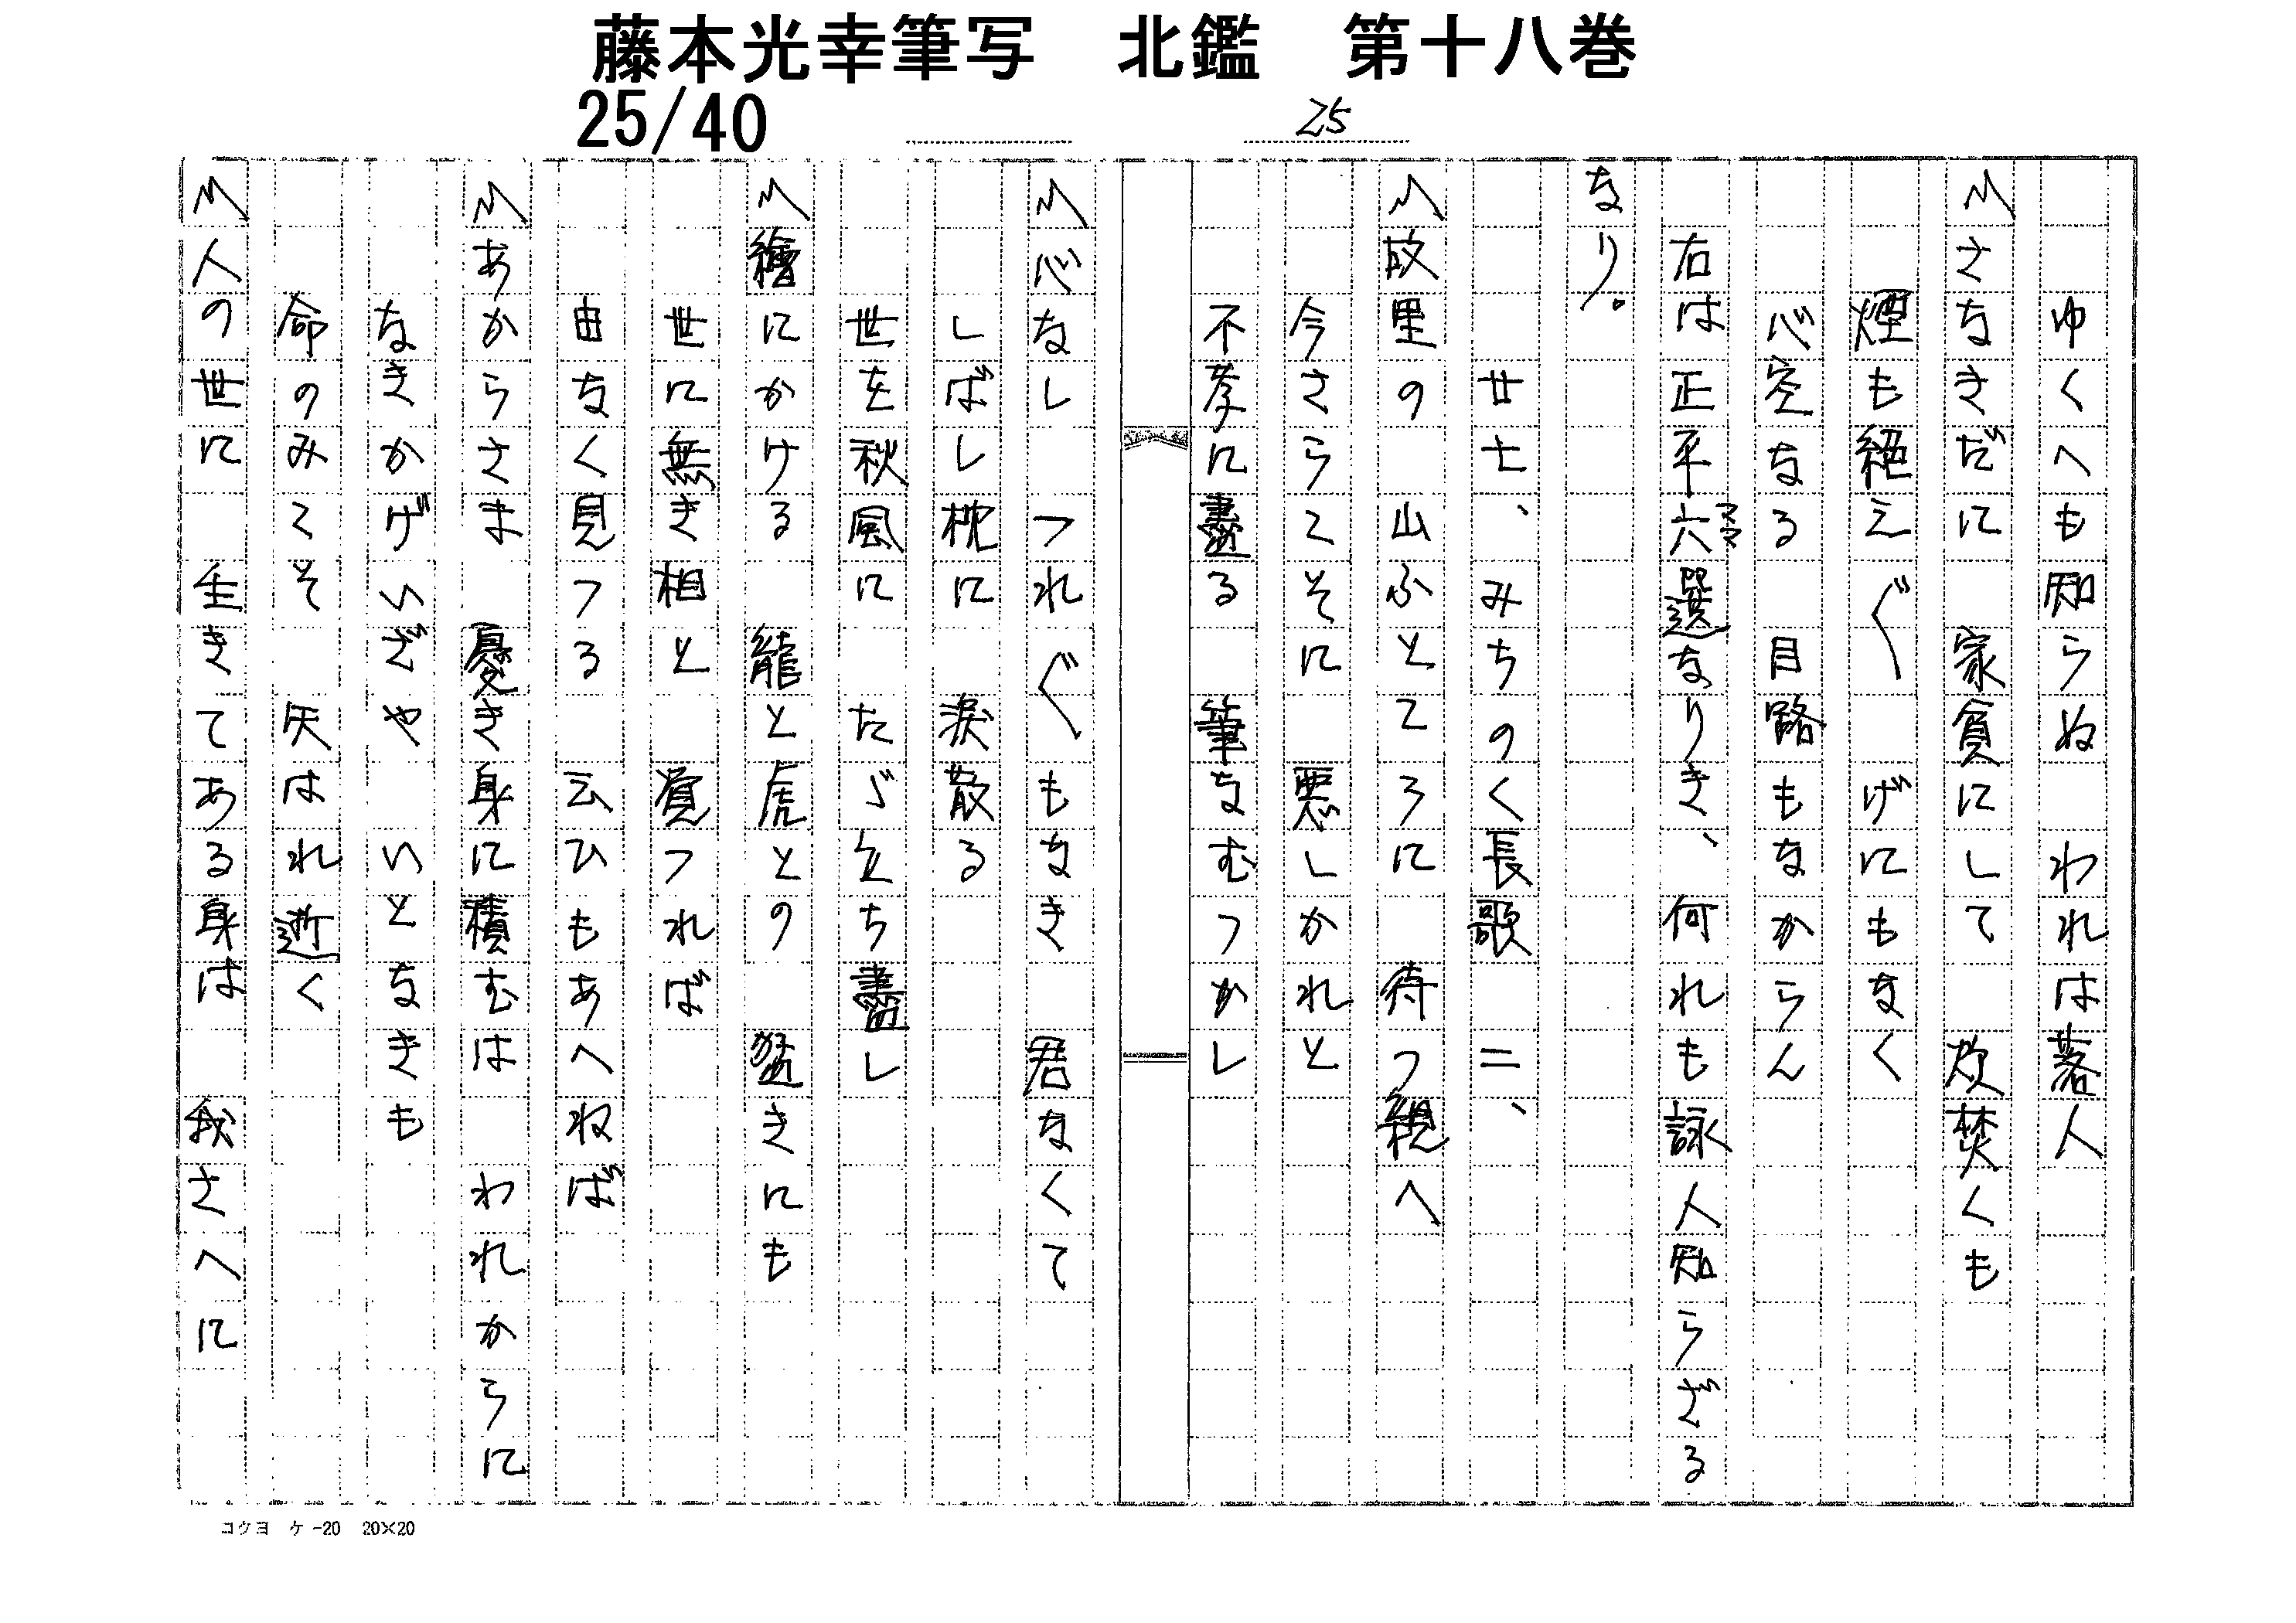 藤本光幸筆写　北鑑　第十八巻
25/40
25
ゆくへも知らぬ　われは落人
〽さなきだに　家貧にして　炊焚くも
煙も絶え〲　げにもなく
心空なる　目路もなからん
右は正平六ママ選なりき、何れも詠人知らざる
なり。
廿七、みちのく長歌　二、
〽故里の　山ふところに　待つ親へ
今さらてそに　悪しかれと
不孝に盡る　筆なむつかし
〽心なし　つれ〲もなき　君なくて
しばし枕に　涙散る
世を秋風に　たゞ立ち盡し
〽繪にかける　龍と虎との　猛きにも
世に無き相と　覚つれば
由なく見つる　云ひもあへねば
〽あからさま　憂き身に積むは　われからに
なきかげいざや　いとなきも
命のみてそ　矢はれ逝く
〽人の世に　生きてある身は　我さへに
コクヨ　ケ-20　20×20